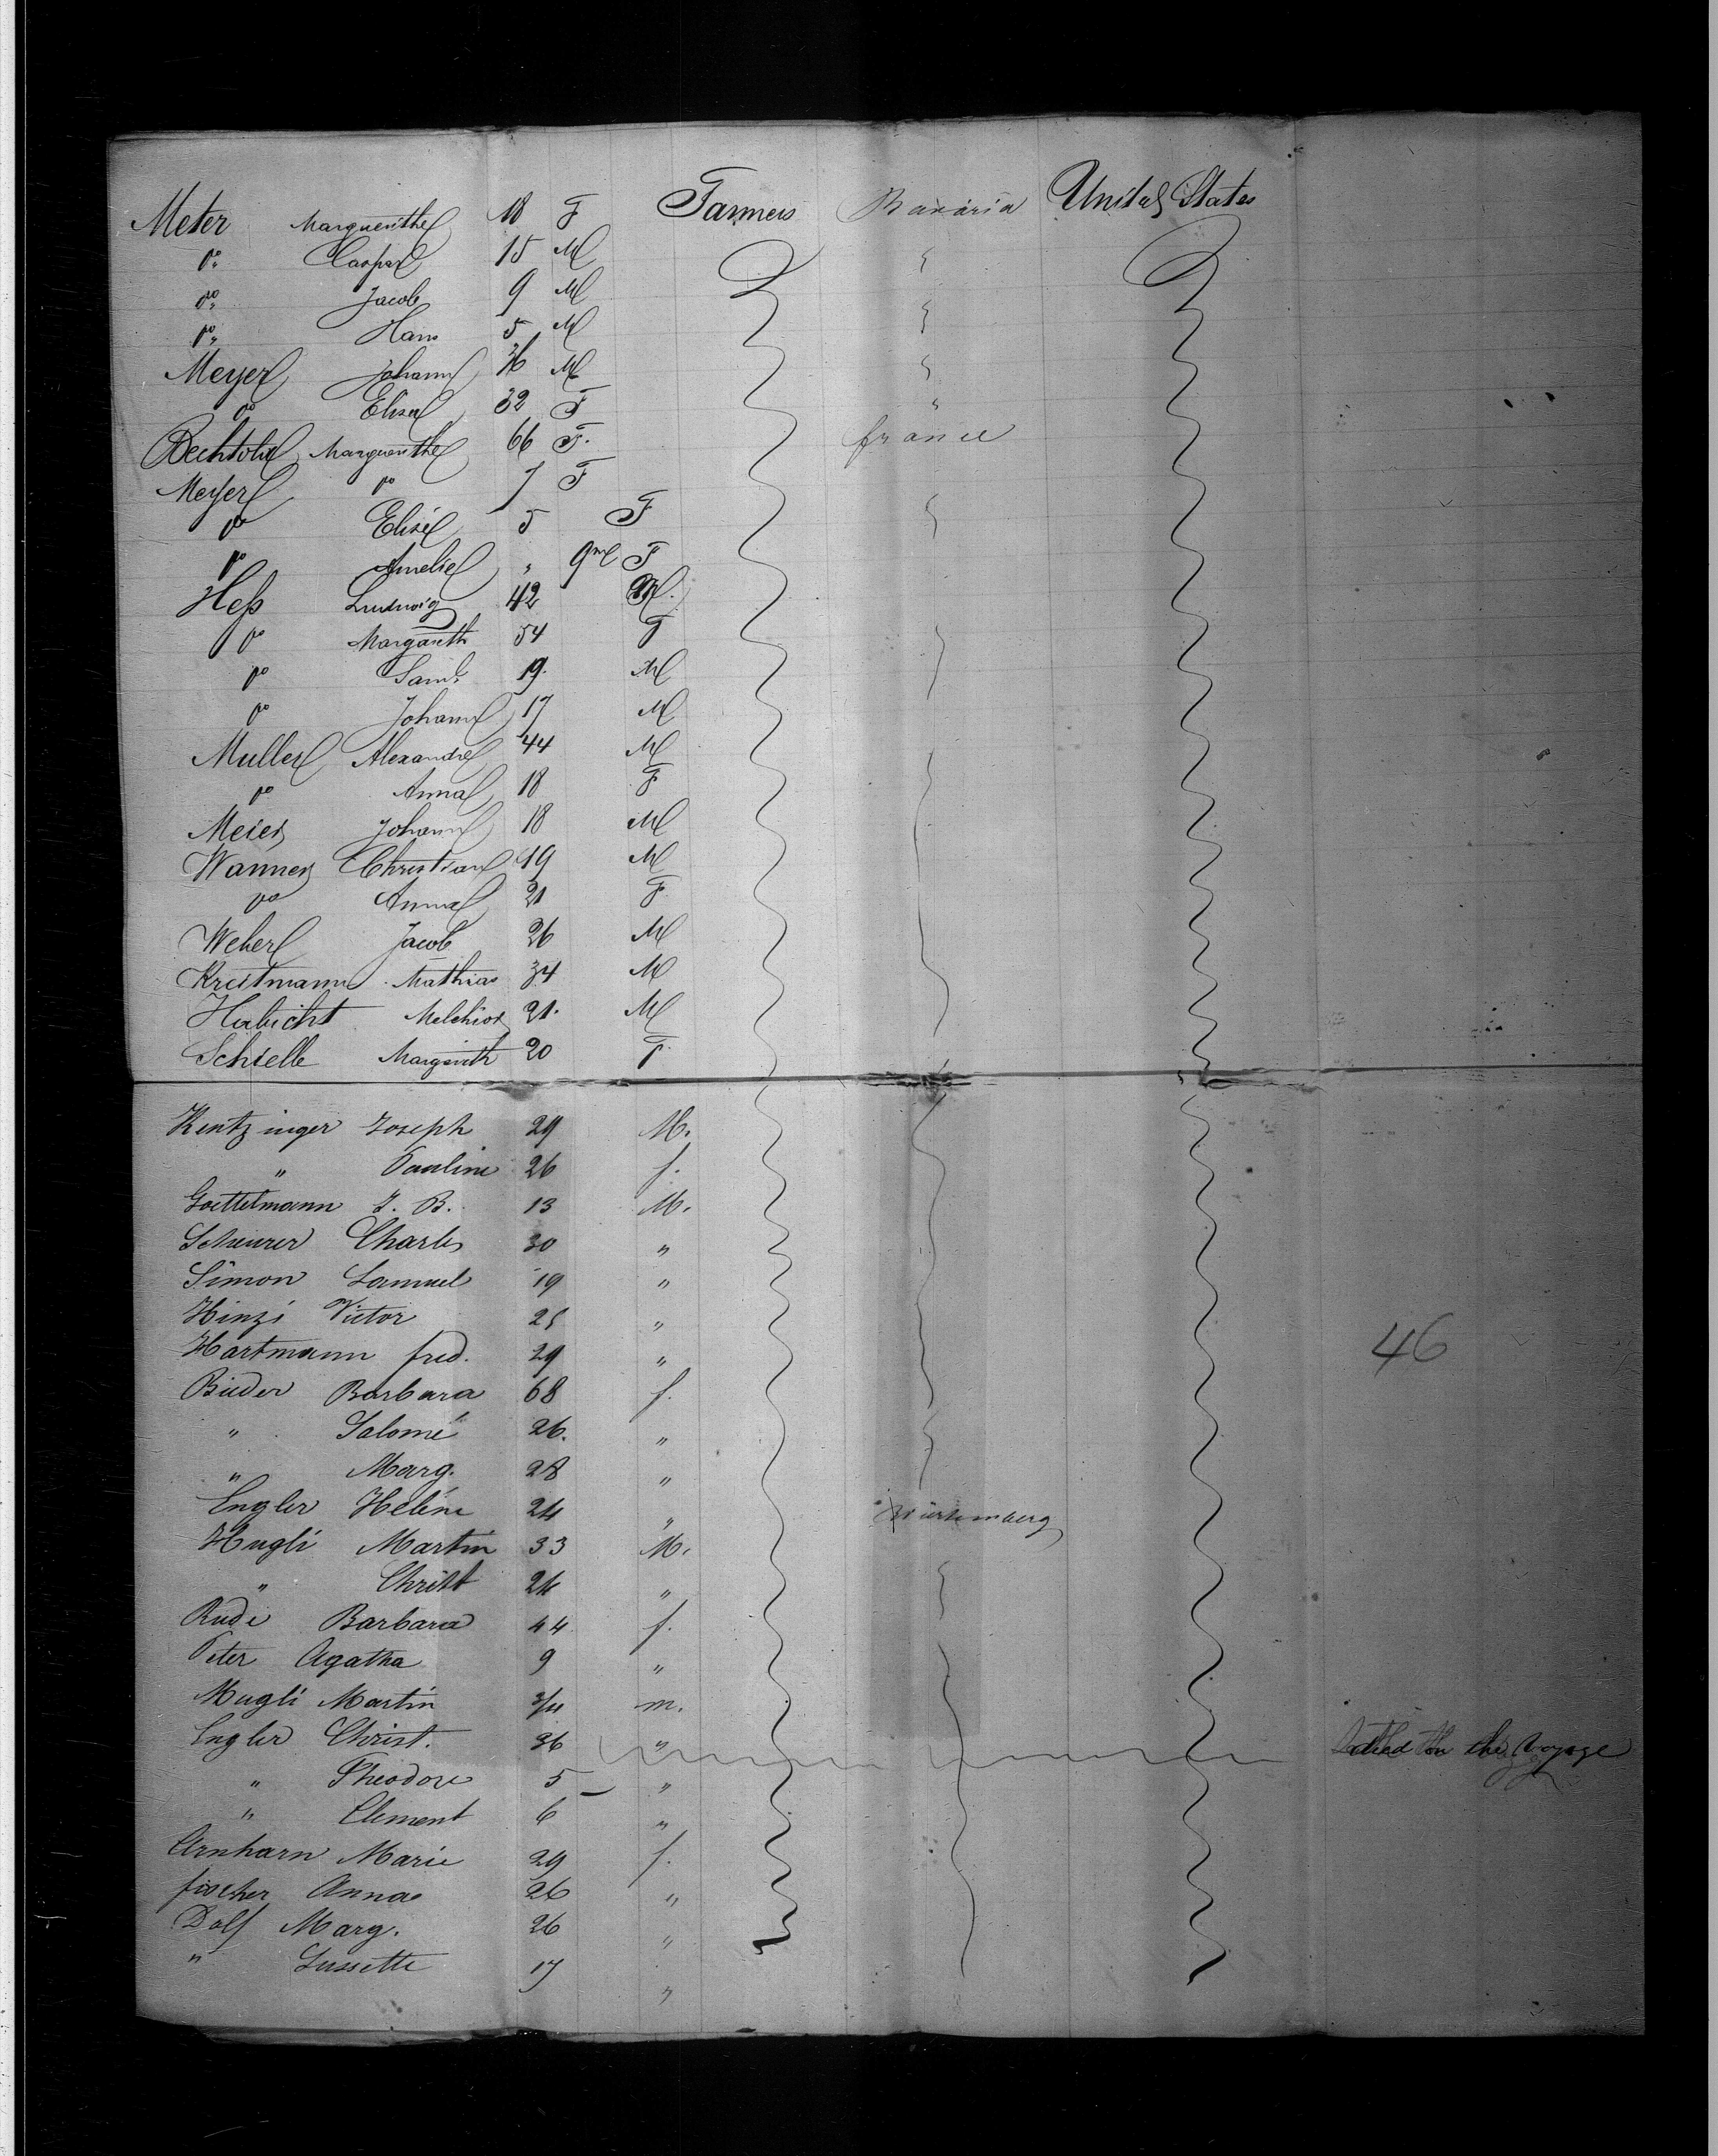 Meter Marguerithe 18 F Farmers Bavaria United States
do Caspar 15 M
do Jacob 9 M
do Hans 5 M
Meyer Johann 36 M
do Elisa 32 F "
Bechtold Marguerithe 66 F. france
Meyer do 7 F
do Elise 5 F
do Amelie " 9m F
Heß Ludwig 42 M.
do Margareth 54 F
do Saml. 19. M
do Johann 17 M
Muller Alexandre 44 M
do Anna 18 F
Meier Johann 18 M
Wanner Christian 49 M
do Anna 21 F
Weber Jacob 26 M
Kreitmann Mathias 34 M
Habicht Melchior 21. M
Schielle Margarith 20 F.
Kentzinger Joseph 29 M.
" Pauline 26 f.
Goettelmann J. B. 13 M.
Scheurer Charles 30 "
Simon Samuel 19 "
Hinzi Victor 25 "
Hartmann fred. 29 "
46
Bieder Barbara 68 f.
" Salomé 26. "
" Marg. 28 "
Engler Helène 24 " Würtemberg
Hugli Martin 33 M.
" Christ 24 "
Rudi Barbara 44 f.
Peter Agatha 9 "
Mugli Martin 3/4 m.
Engler Christ. 36 " died on the voyage
" Theodore 5 "
" Clement 6 "
Arnharn Marie 29 f.
fischer Anna 26 "
Dolf Marg. 26 "
" Sussette 17 "